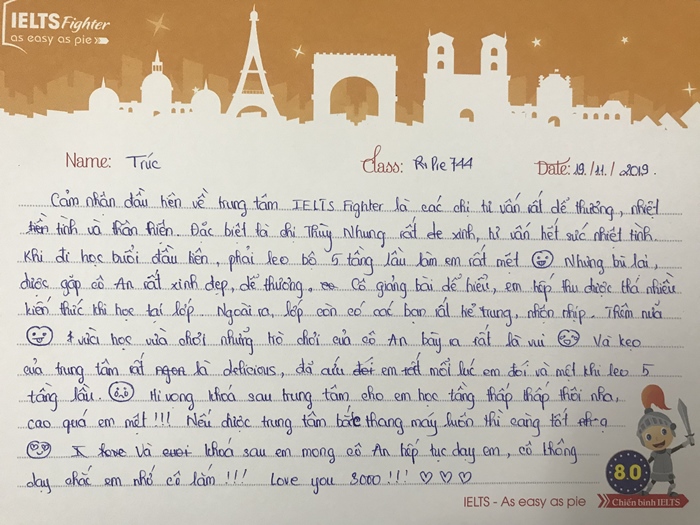 IELTS Fighter
as easy as pie
Name: Trúc Class: Pi Pie 744 Date: 19./11./2019.
Cảm nhận đầu tiên về trung tâm IELTS Fighter là các chị tư vấn rất dễ thương, nhiệt
tình và thân thiện. Đặc biệt là chị Thủy Nhung rất de xinh, tư vấn hết sức nhiệt tình.
Khi đi học buổi đầu tiên, phải leo bộ 5 tầng lầu làm em rất mệt Nhưng bù lại,
được gặp cô An rất xinh đẹp, dễ thương. Cô giảng bài dễ hiểu, em hấp thu được khá nhiều
kiến thức khi học tại lớp. Ngoài ra, lớp còn có các bạn rất trẻ trung, nhộn nhịp. Thêm nữa
vừa học vừa chơi những trò chơi của cô An bày ra rất là vui Và kẹo
của trung tâm rất ngon là delicious, đã cứu đói em mỗi lúc em đói và mệt khi leo 5
tầng lầu. Hi vọng khoá sau trung tâm cho em học tầng thấp thấp thôi nha,
cao quá em mệt!!! Nếu được trung tâm bắc thang máy luôn thì càng tốt ạ
Và khoá sau em mong cô An tiếp tục dạy em, cô không
dạy chắc em nhớ cô lắm!!! Love you 3000!!! ♡♡♡
8.0
IELTS - As easy as pie Chiến binh IELTS